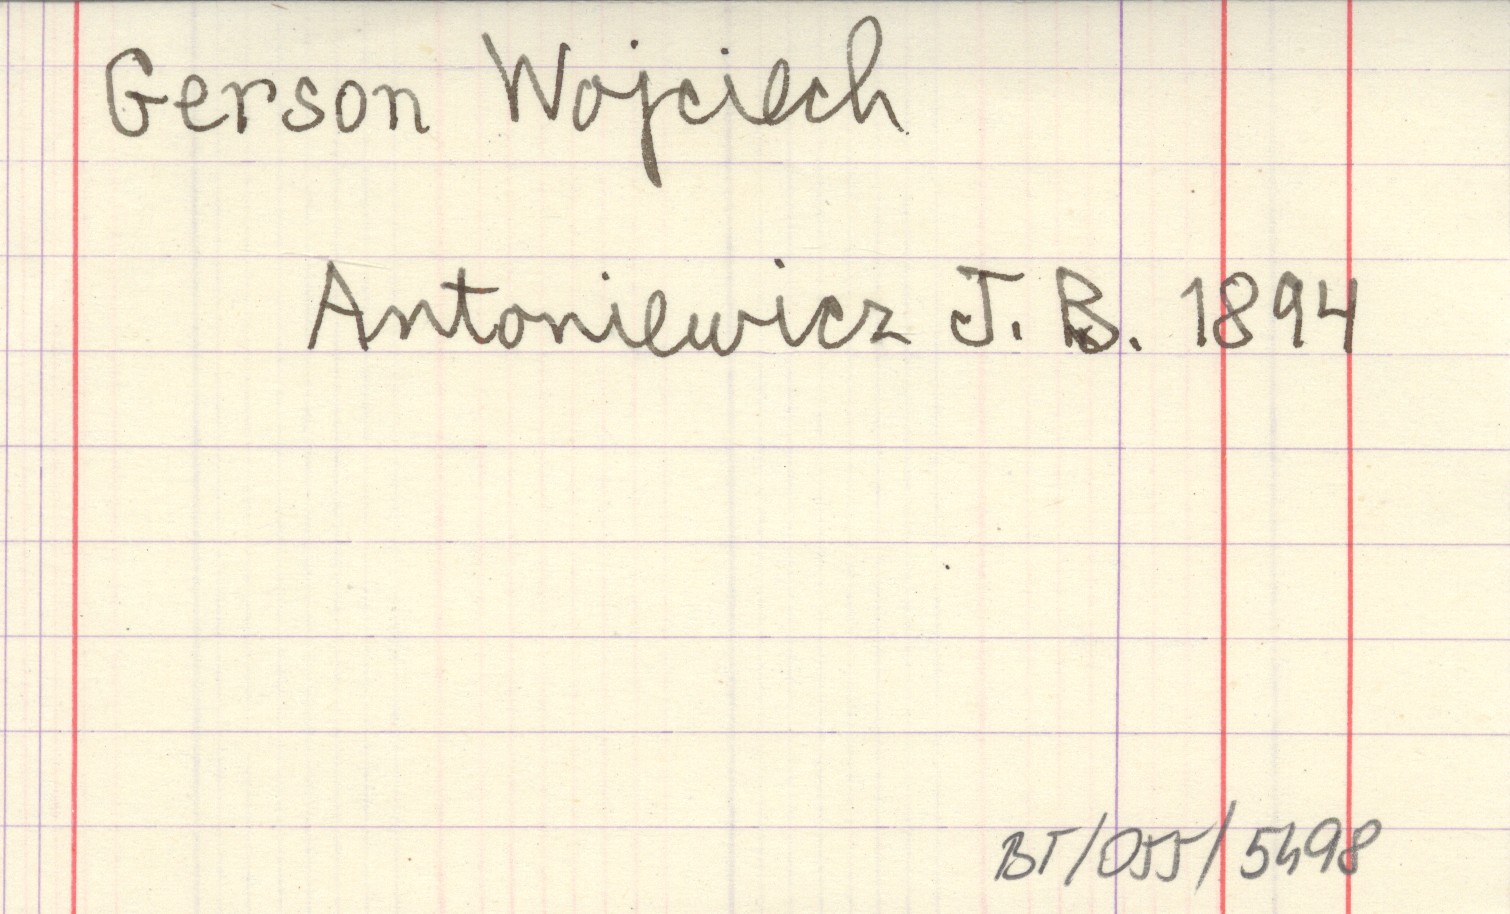 Gerson Wojciech
Antoniewicz J. B. 1894
BT/055/5498